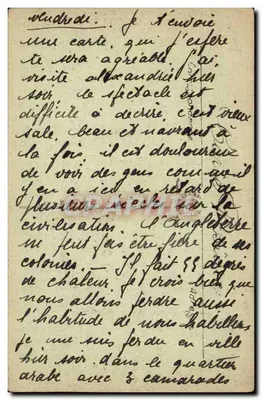 vendredi. Je t'envoie
une carte, qui j'espère
te sera agréable. J'ai
visité Alexandrie hier
soir le spectacle est
difficile à décrire, c'est
sale, beau et navrant à
la fois, il est douloureux
de voir des gens comme il
y en a ici en retard de
plusieurs siècles sur la
civilisation. L'Angleterre
ne peut pas être fière de ses
colonies. — Il fait 55 degrés
de chaleur. Je crois bien que
nous allons perdre aussi
l'habitude de nous habiller
je me suis perdu en ville
hier soir dans le quartier
arabe avec 3 camarades